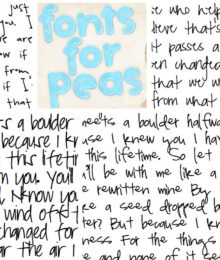 just
you
are
now if
from
if I
that
fonts
for
peas
who help
ere that's
it passes a
en changed
that we w
from what
s a boulder
because I kn
this lifetim
m you. You'll
I know you
wind off t
changed for
r the air I
needs a boulder halfwa
use I knew you I hav
this lifetime. So let
'll be with me like a
e rewritten mine By
ke a seed dropped b
ter? But because I kn
ness For the things
e and none of it se